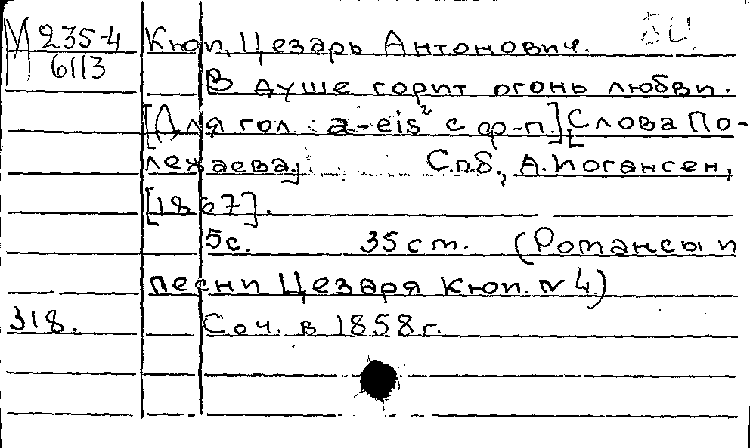 М 235-4
6113
Кюи, Цезарь Антонович.
В душе горит огонь любви.
[Для гол. a-eis² с ф-п.] [Слова По-
лежаева.] Спб., А. Иогансен,
[1867].
5 с. 35 cm. (Романсы и
песни Цезаря Кюи. № 4)
318.
Соч. в 1858 г.